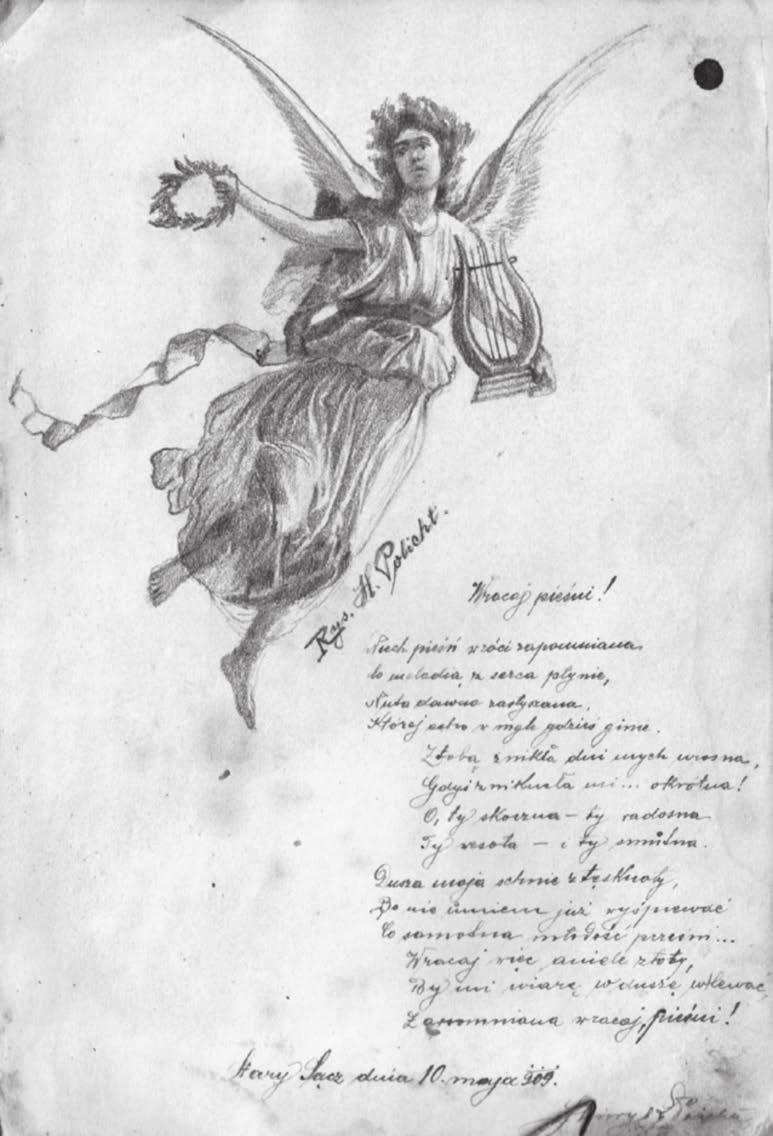 Rys. H. Policht.
Wracaj pieśni!
Niech pieśń wróci zapomniana
Co melodią z serca płynie,
Nuta dawno zasłyszana,
Której echo w mgle gdzieś ginie.
Z tobą znikła dni mych wiosna,
Gdyś zniknęła mi... okrótna!
O, ty skoczna – ty radosna
Ty wesoła – i ty smutna.
Dusza moja schnie z tęsknoty,
Bo nie umiem już wyśpiewać
Co samotna młodość prześni...
Wracaj więc aniele złoty,
By mi wiarę w duszę wlewać
Zapomniana wracaj, pieśni!
Stary Sącz dnia 10. maja 909.